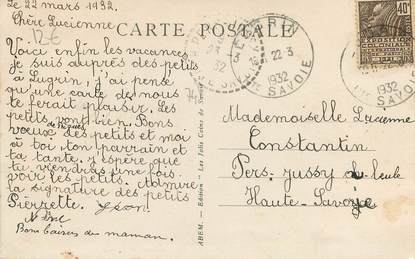 Le 22 mars 1932
Chère Lucienne
12€
CARTE POSTALE
Voici enfin les vacances
je suis auprès des petits
à Lugrin, j'ai pensé
qu'une carte de nous
te ferait plaisir. Les
petits vont bien. Bons
vœux des petits et moi
de Pâques
à toi ton parrain et
ta tante. j'espère que
tu viendras une fois
voir les petits. Admire
la signature des petits
Pierrette. Jean.
Bons baisers de maman.
LUGRIN
16 22-3
1932
Hte SAVOIE
1932
Hte SAVOIE
40c
COLONIALE
Mademoiselle Lucienne
Constantin
Pers-Jussy
Haute-Savoie
ABEM. - Edition - Les Jolis Coins de Savoie